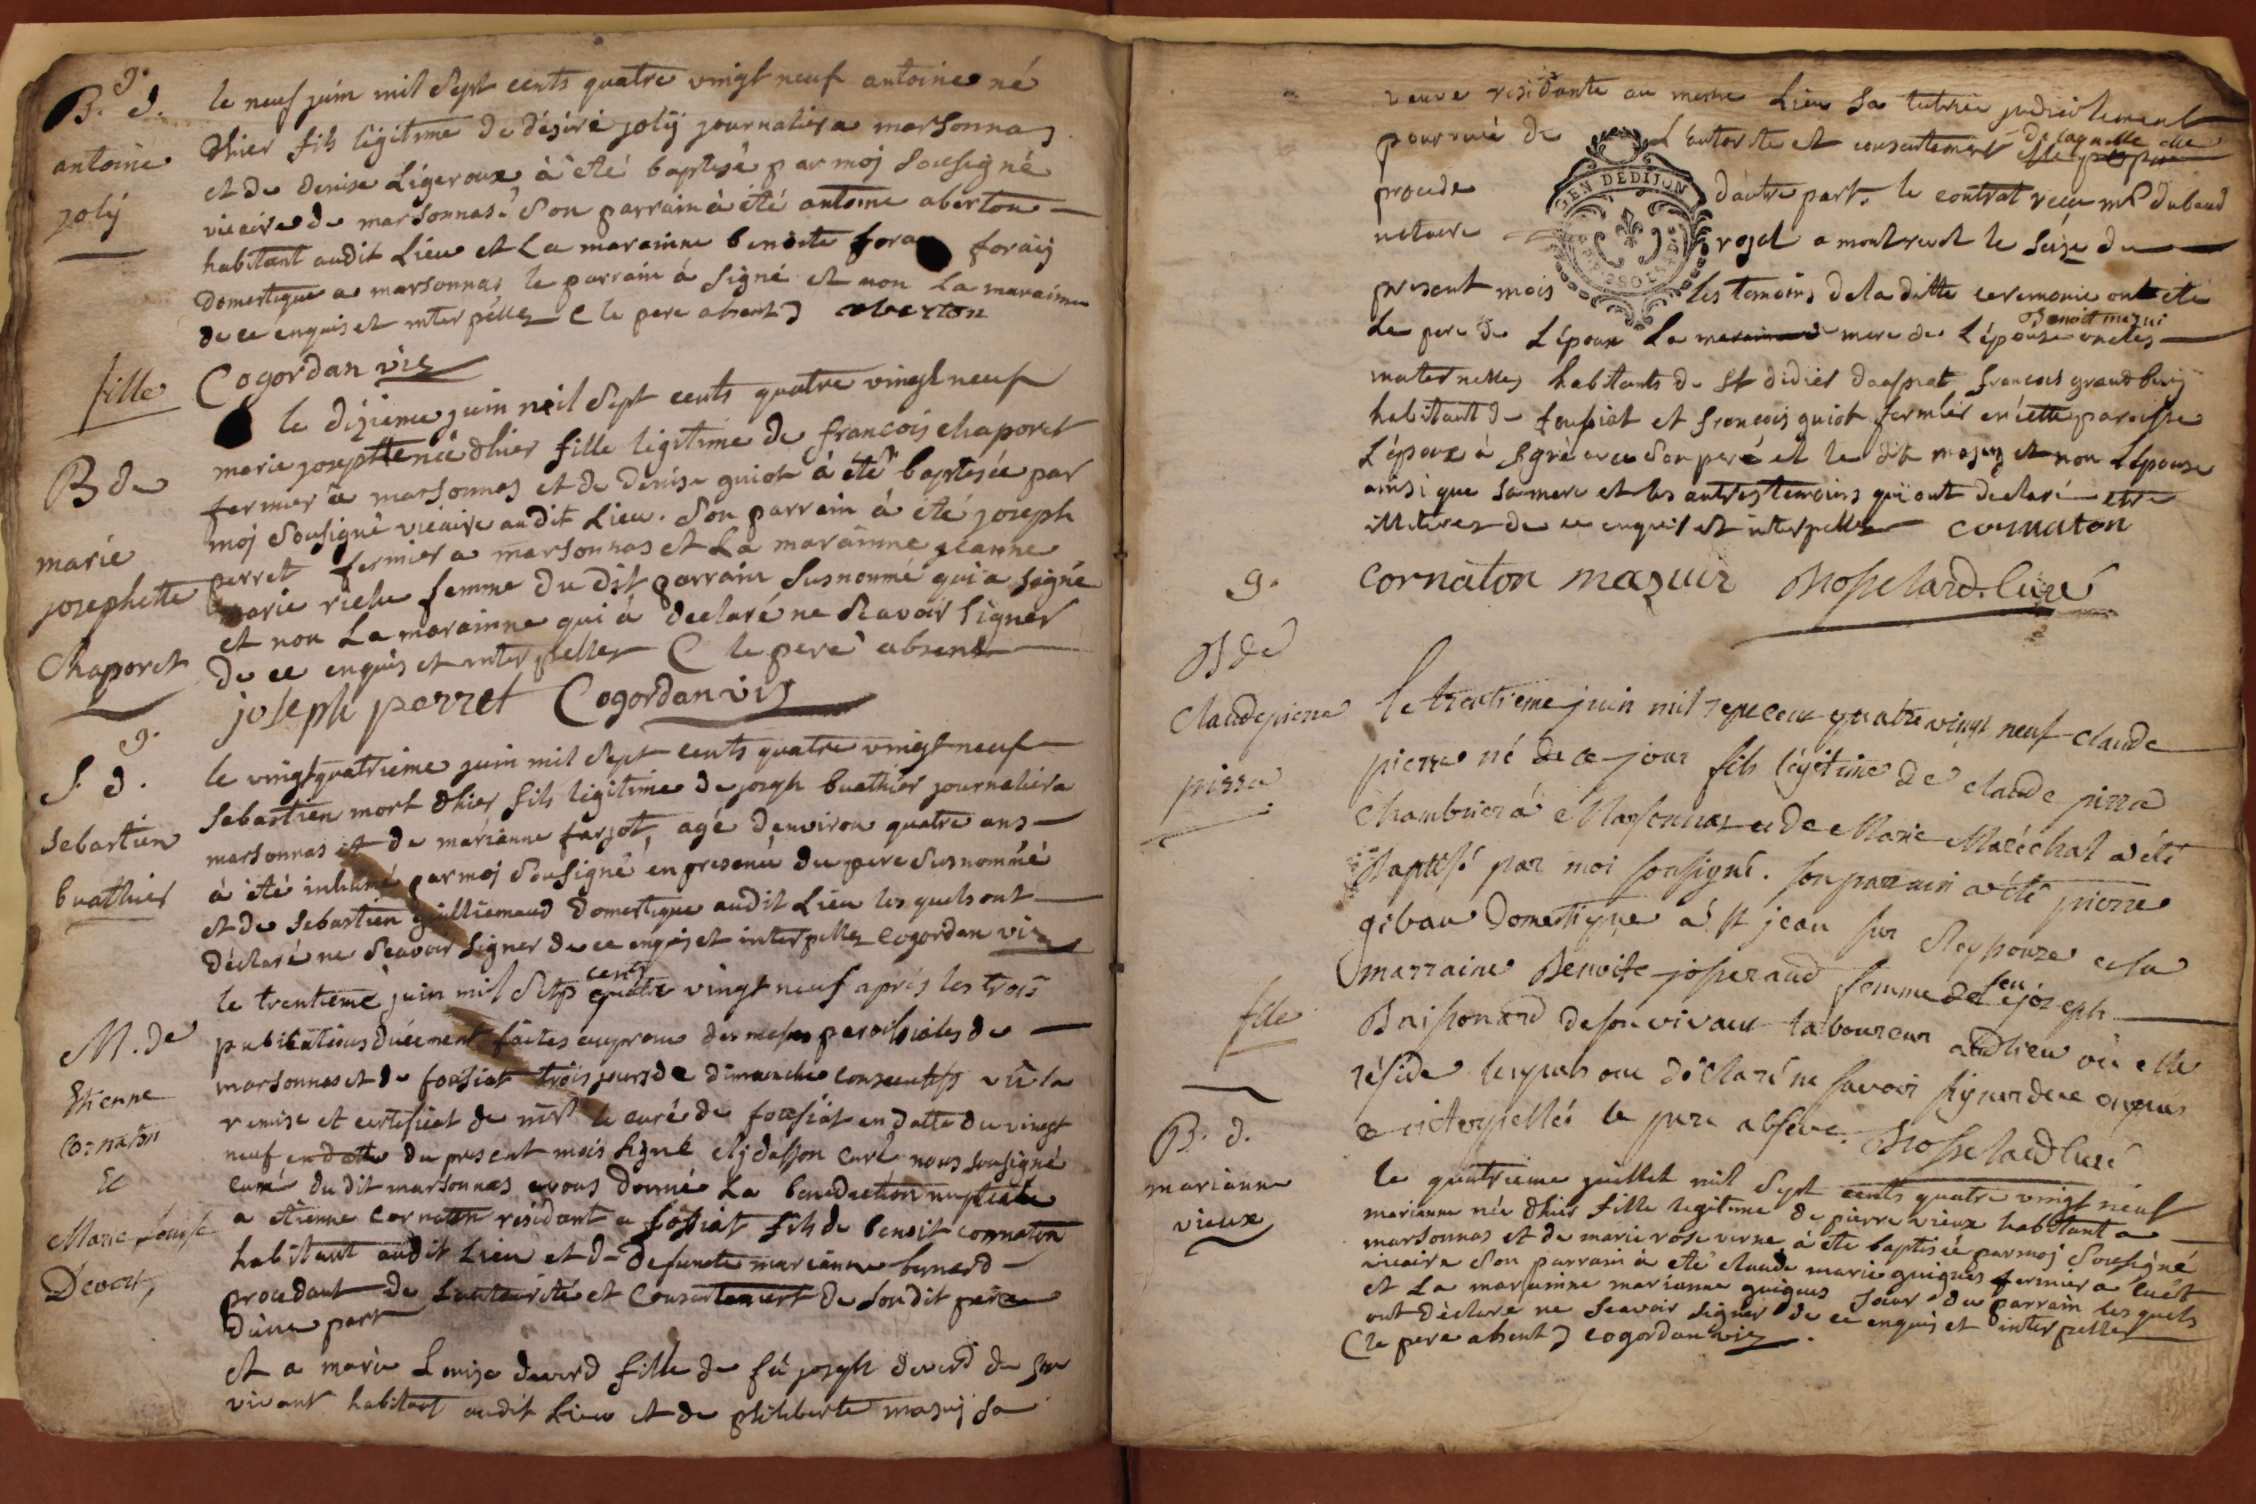 g.
B. d.
antoine
joly
le neuf juin mil Sept cents quatre vingt neuf antoine né
dhier fils légitime de désiré jolÿ journalier a marsonnas
et de denise Ligeroux à été baptisé par moj Sousigné
vicaire de marsonnas. Son parrain à été antoine aberton
habitant audit Lieu et La marainne benoite foraÿ
domestique a marsonnas le parrain à signé et non La marainne
de ce enquis et interpellez ( le pere absent ) aberton
Cogordan vic
fille
B de
marie
josephette
Chaporet
le dizieme juin mil Sept cents quatre vingt neuf
marie josephte née dhier fille legitime de francois chaporet
fermier a marsonnas et de denise guiot à été baptisée par
moj Sousigné vicaire audit Lieu. Son parrain à été joseph
perret fermier a marsonnas et La marainne jeanne
marie riche femme du dit parrain susnommé qui a signé
et non La marainne qui à declaré ne Scavoir signer
de ce enquis et interpeller ( le pere absent
joseph perret Cogordan vic
g.
S. d.
Sebastien
buathier
le vingt quatrieme juin mil Sept cents quatre vingt neuf
Sebastien mort dhier fils legitime de joseph buathier journalier a
marsonnas et de mariànne farjot, agé denviron quatre ans
à été inhumé par moj Sousigné en presence du pere susnommé
et de Sebastien guilliemaud domestique audit Lieu les quels ont
déclaré ne Scavoir signer de ce enquis et interpellez cogordan vic
M. de
Etienne
Cornaton
Et
Marie Louise
Devert,
le trentieme juin mil Setp cents quatre vingt neuf après les trois
publications düement faites au prone des messes paroissiales de
marsonnas et de foissiat trois jours de dimanche consecutifs vû la
remise et certificat de mr le curé de foissiat en datte du vingt
neuf en datte du present mois signé curé nous sousigné
curé du dit marsonnas avons donné La benediction nuptiale
a étienne cornaton residant a foissiat fils de benoit cornaton
habitant audit Lieu et de defuncte marianne bernard
procedant de L'autorité et Consentement de son dit pere
d'une part
et a marie Louise deverd fille de fû joseph deverd de son
vivant habitant audit Lieu et de philiberte mazuÿ sa
veuve residante au meme Lieu sa tutrice judicielement
pourvüe de L'autorite et consentement de laquelle elle
procede d'autre part. le contrat recu mr dubaud
notaire royal a montrevel le seize du
present mois les temoins de la ditte ceremonie ont été
GEN DE DIJON
Le pere de L'époux La mere de L'épouse Benoit mazui oncles
maternelles habitants de St didier daussiat francois grandbuÿ
habitant de foissiat et francois guiot fermier en cette paroisse
L'époux à signé avec son peré et le dit mazuy et non L'épouse
ainsi que sa mere et les autres temoins qui ont declaré etre
illitérés de ce enquis et interpellez cornaton
cornaton mazuir Mosselard. Curé
g.
B de
Claude pierre
pirra
le trentieme juin mil sept cent quatre vingt neuf claude
pierre né de ce jour fils légitime de claude pirra
chambrier á Marsonnas et de Marie Maréchal a été
Baptisé par moi soussigné. son parrain a été pierre
giban Domestique á St jean sur Reyssouze et la
marraine Benoite josserand femme de feu joseph
Buissonard de son vivant laboureur audit lieu où elle
réside lesquels ont déclaré ne savoir signer de ce enquis
et interpellés le pere absent. Mosselard Curé
fille
B. d.
marianne
vieux
le quatrieme juillet mil Sept cents quatre vingt neuf
marianne née dhier fille legitime de pierre vieux habitant a
marsonnas et de marie rose verne à été baptisée par moj Sousigné
vicaire Son parrain à été claude marie guigues fermier a cuét
et La marainne marianne guigues soeur du parrain les quels
ont déclaré ne Scavoir signer de ce enquis et interpeller
( le pere absent ) cogordan vic